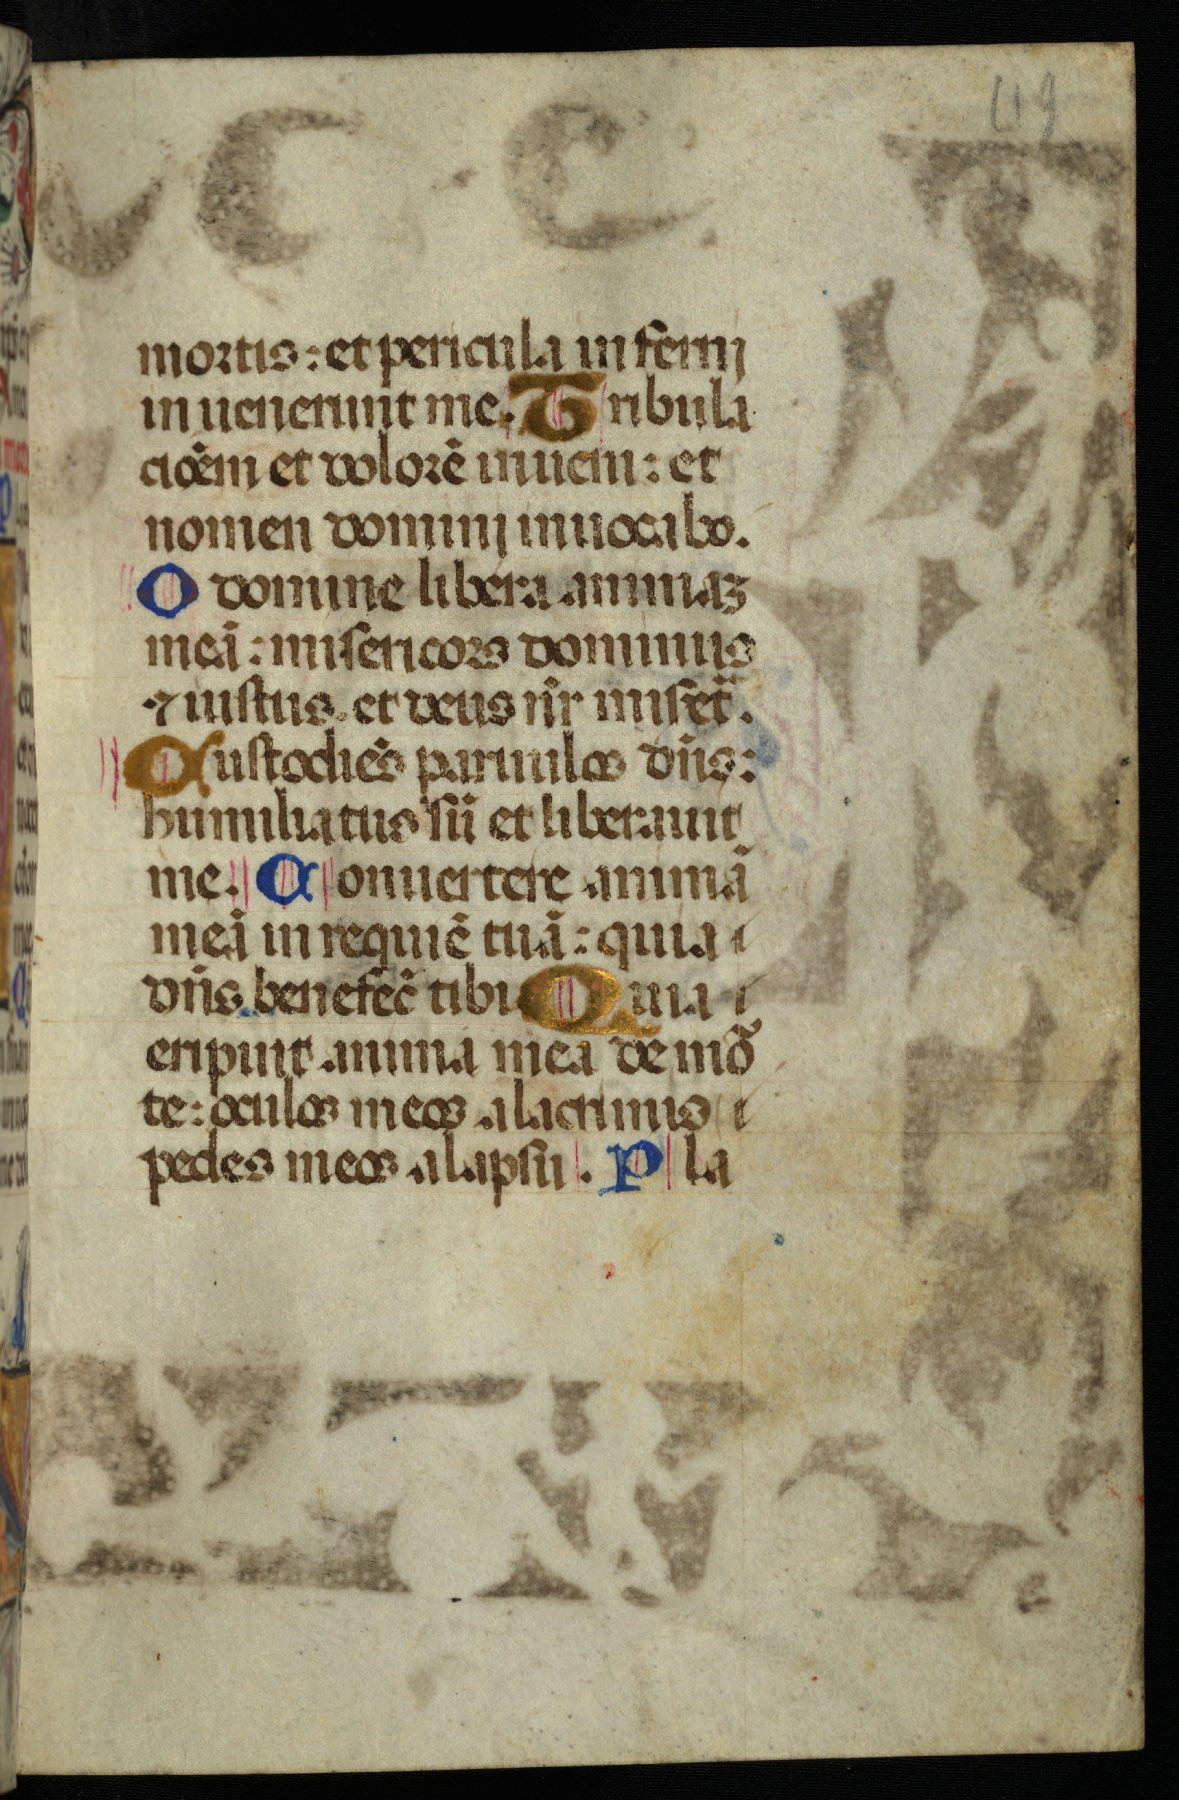 119
mortis: et pericula infernj
inuenerunt me. Tribula
cioẽm et dolorẽ inueni: et
nomen dominj inuocabo.
O domine libera animaz
meã: misericors dominus
⁊ iustus. et deus nr̃ miset̃.
Custodiẽs paruulos dñs:
humiliatus sũ et liberauit
me. Conuertere animã
meã in requiẽ tuã: quia
dñs benefec̃ tibi Quia
eripuit anima mea de mõ
te: oculos meos alacrimis
pedes meos alapsu. Pla